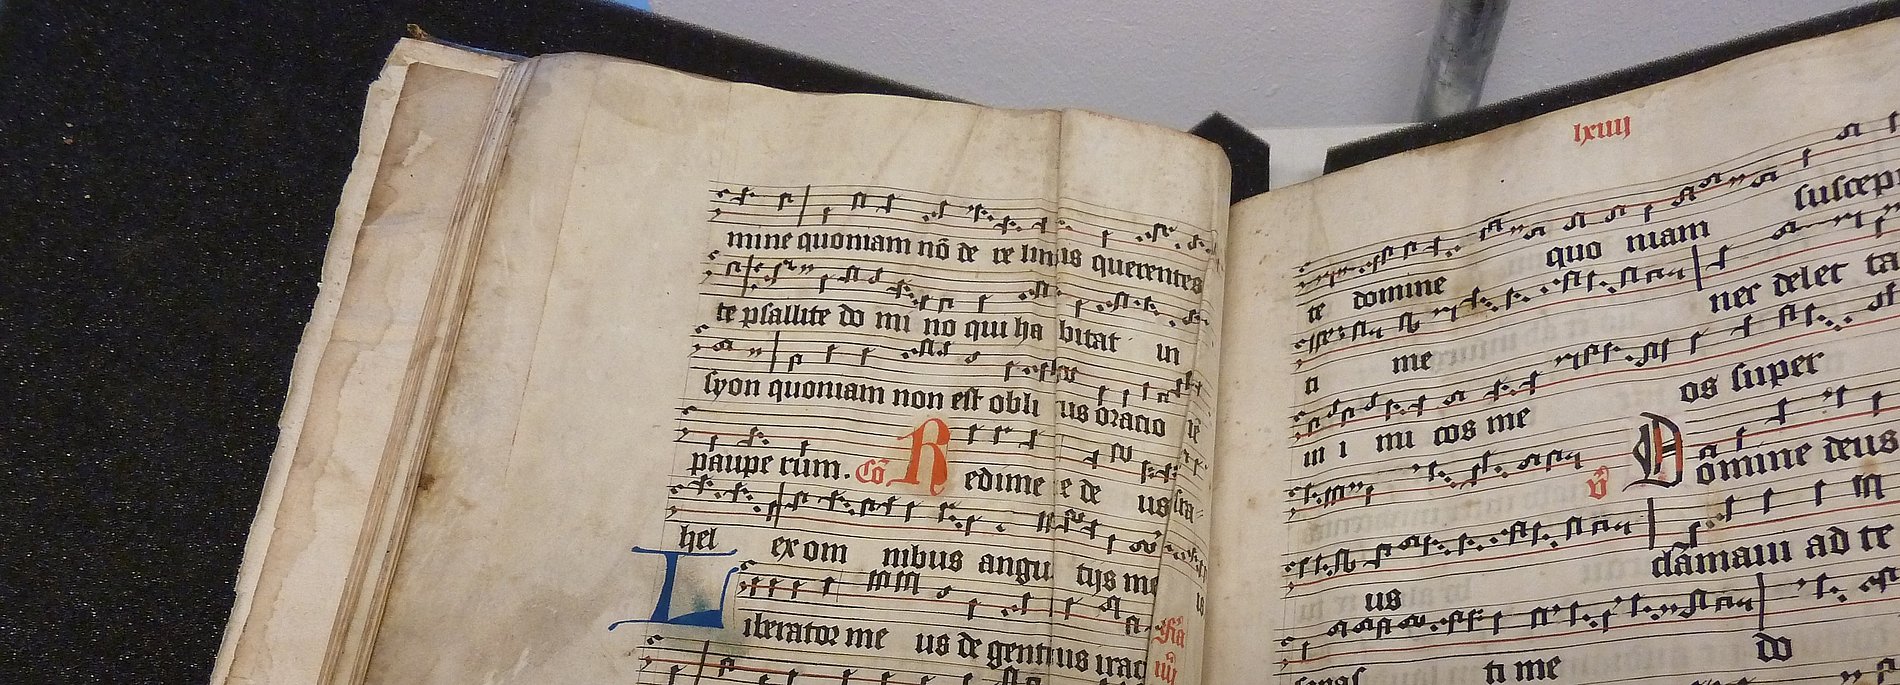 mine quoniam nō de re linquis querentes
te psallite do mi no qui ha bitat in
syon quoniam non est obli tus oratio nē
pau pe rum. Cō Redime me de us isra-
hel ex om nibus angu stijs me
is
Liberator me us de gentibus irac
lxiiij
suscepi
te domine quo niam
nec delec ta
ti me
os super
in i mi cos me
℣ Domine deus
clamaui ad te
us
do
ti me